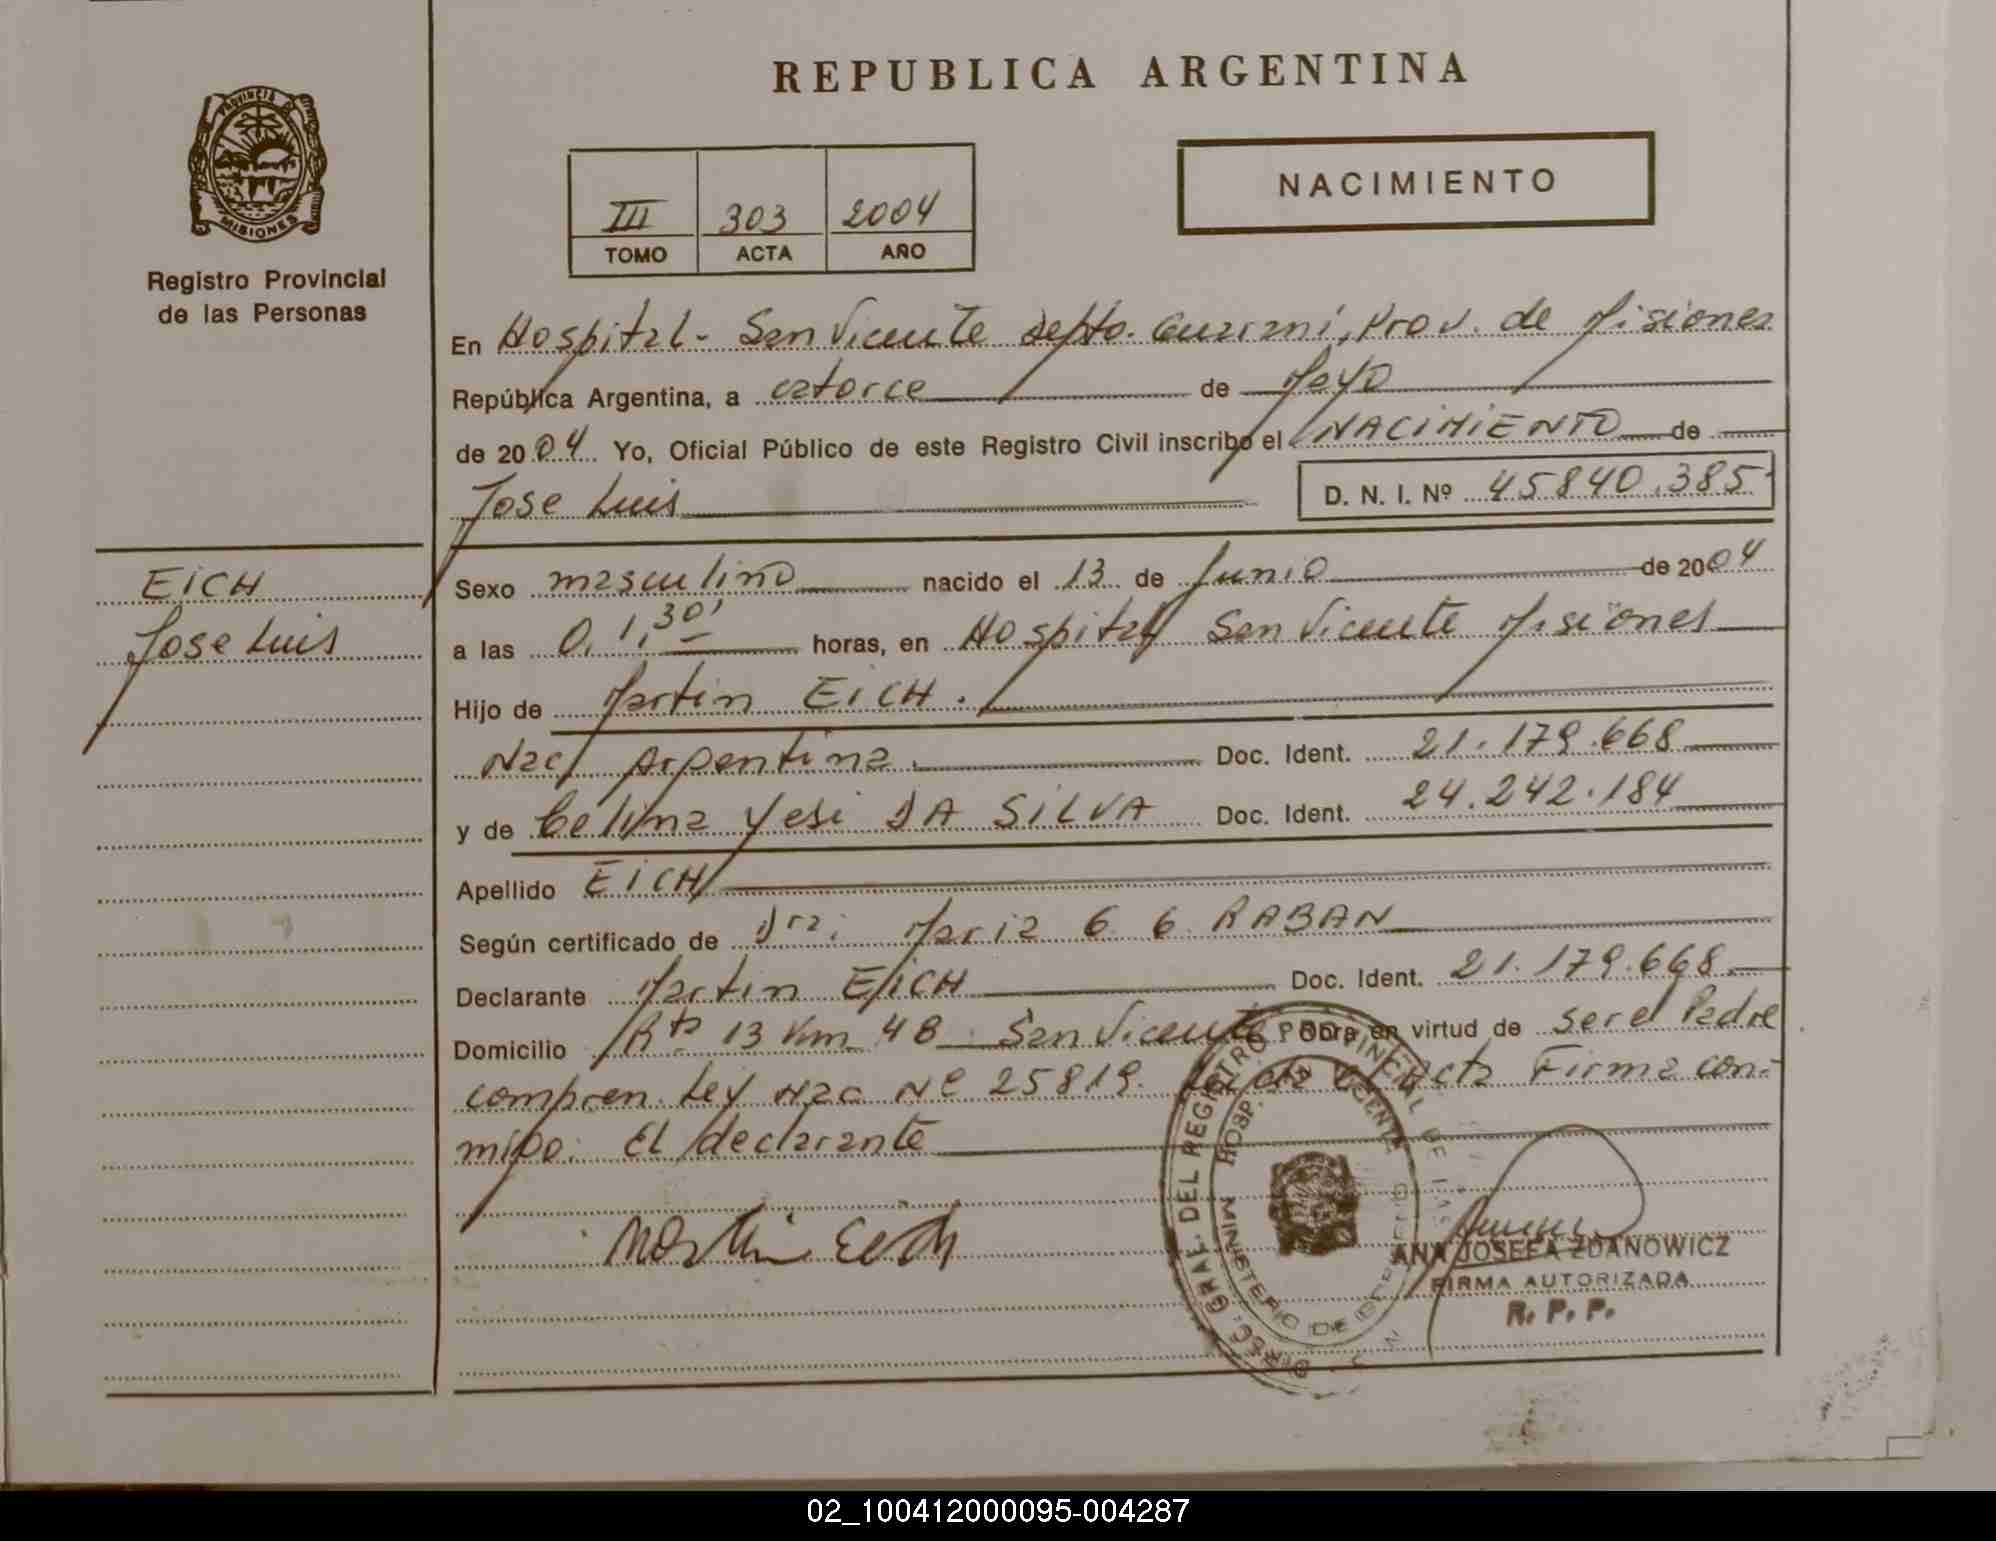 REPUBLICA ARGENTINA
NACIMIENTO
III 303 2004
TOMO ACTA AÑO
PROVINCIA DE
MISIONES
Registro Provincial
de las Personas
EICH
Jose Luis
En Hospital - San Vicente Depto. Guarani, Prov. de Misiones
República Argentina, a catorce de Mayo
de 2004 Yo, Oficial Público de este Registro Civil inscribo el NACIMIENTO de
Jose Luis D. N. I. Nº 45840.385
Sexo masculino nacido el 13 de Junio de 2004
a las 0,1,30' horas, en Hospital San Vicente Misiones
Hijo de Martin EICH.
Nac Argentina. Doc. Ident. 21.179.668
y de Celina Yesi DA SILVA Doc. Ident. 24.242.184
Apellido EICH
Según certificado de Dra: Maria G. G. RABAN
Declarante Martin EICH Doc. Ident. 21.179.668
Domicilio Rta 13 Km 48 San Vicente Obra en virtud de ser el Padre
compren. Ley Nac Nº 25819. Leida el Acta Firma con-
migo: El declarante
Martin Eich
DIREC. GRAL. DEL REGISTRO PROVINCIAL DE LAS
HOSP. SAN VICENTE
MINISTERIO DE GOBIERNO
ANA JOSEFA ZDANOWICZ
FIRMA AUTORIZADA
R. P. P.
02_100412000095-004287